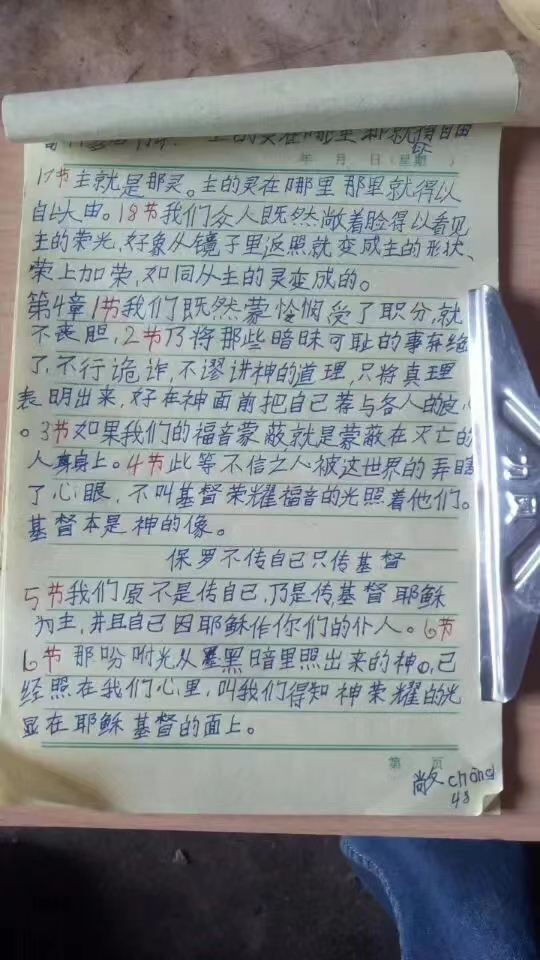 主的灵在哪里 那就得自由
年 月 日(星期 )
17节主就是那灵。主的灵在哪里 那里就得以
自以由。18节我们众人既然敞着脸得以看见
主的荣光,好象从镜子里返照就变成主的形状、
荣上加荣,如同从主的灵变成的。
第4章1节我们既然蒙怜悯受了职分,就
不丧胆,2节乃将那些暗昧可耻的事弃绝
了,不行诡诈,不谬讲神的道理,只将真理
表明出来,好在神面前把自己荐与各人的良心
。3节如果我们的福音蒙蔽,就是蒙蔽在灭亡的
人身上。4节此等不信之人被这世界的弄瞎
了心眼,不叫基督荣耀福音的光照着他们。
基督本是神的像。
保罗不传自己只传基督
5节我们原不是传自己,乃是传基督耶稣
为主,并且自己因耶稣作你们的仆人。6节
6节那吩咐光从黑暗里照出来的神。已
经照在我们心里,叫我们得知神荣耀的光
显在耶稣基督的面上。
第 页
敞chǎng
48